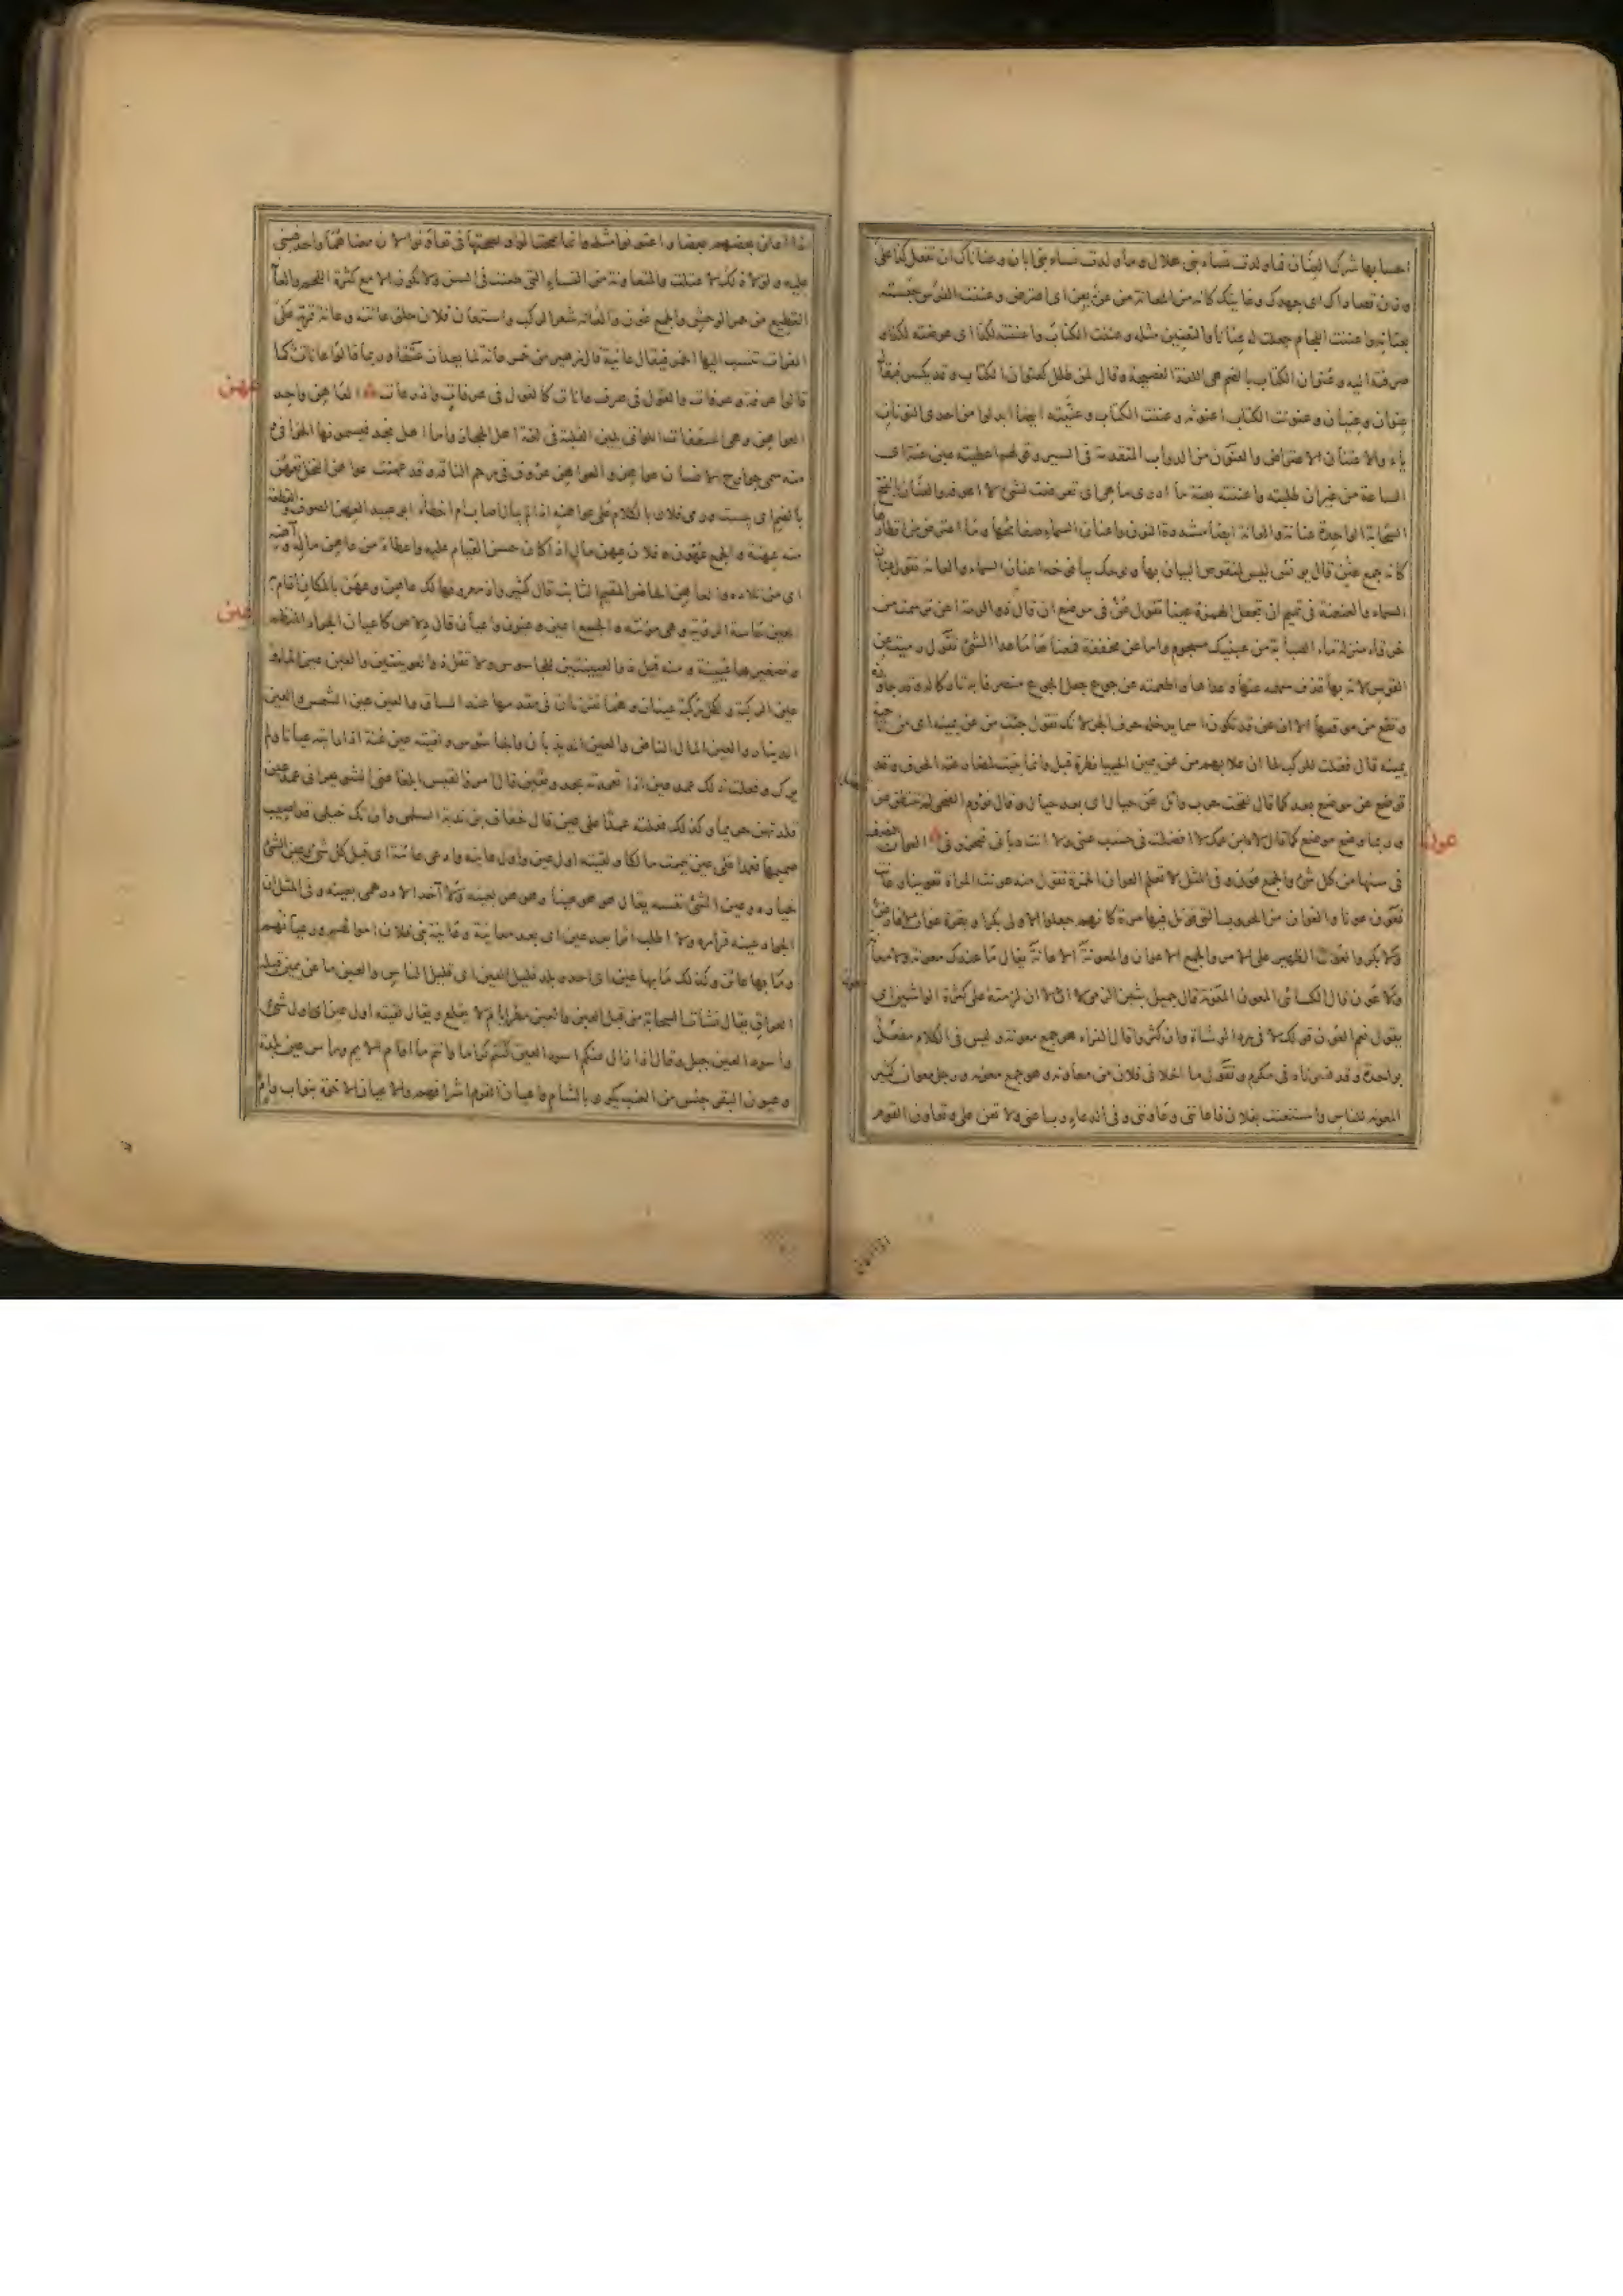 احسابها شرك العنان وما ولدت نساء بني هلال وما ولدت نساء بني ابان وعناناك ان تفعل كذا على
وزن قصاراك اي جهدك وغايتك كانه من المعانة من عن يعن اي اعترض وعننت الفرس حبسته
بعنانه واعننت اللجام جعلت له عنانا والتعنين مثله وعننت الكتاب واعننته لكذا اي عرضته لكذا و
صرفته اليه وعنوان الكتاب بالضم هي اللغة الفصيحة وقال لمن طلل كعنوان الكتاب وقد يكسر فيقال
عنوان وعنيان وعنونت الكتاب اعنونه وعننت الكتاب وعنيته ايضا ابدلوا من احدى النونات
ياء والاعتنان الاعتراض والعنون من الدواب المتقدمة في السير وقولهم اعطيته عين عنة اي
الساعة من غير ان طلبته واعننت بعنة ما ادري ما هي اي تعرضت لشيء لا اعرفه والعنان بالفتح
السحابة الواحدة عنانة والعانة ايضا مشددة النون واعنان السماء صفائحها وما اعترض من اقطارها
كانه جمع عنن قال يونس ليس لمنقوص البيان بهاء ولو حك بيافوخه اعنان السماء والعامة تقول عنان
السماء والعنعنة في تميم ان تجعل الهمزة عينا تقول عن في موضع ان قال ذو الرمة اعن ترسمت من
خرقاء منزلة ماء الصبابة من عينيك مسجوم واما عن مخففة فمعناها ما عدا الشيء تقول رميت عن
القوس لانه بها قذف سهمه عنها وعداها واطعمته عن جوع جعل الجوع منصرفا به تاركا له وقد جاوزه
وتقع من موقعها الا ان عن قد تكون اسما يدخل حرف الجر لانك تقول جئت من عن يمينه اي من ناحية
يمينه قال فقلت للركب لما ان علا بهم من عن يمين الحبيا نظرة قبل وانما بنيت لمضارعتها الحروف وقد
توضع عن موضع بعد كما قال لقحت حرب وائل عن حيال اي بعد حيال وقال نؤوم الضحى لم تنتطق عن
وربما وضع موضع على كما قال لاه ابن عمك لا افضلت في حسب عني ولا انت دياني فتخزوني العوان النصف
في سنها من كل شيء والجمع عون وفي المثل لا تعلم العوان الخمرة تقول منه عونت المراة تعوينا وعانت
تعون عونا والعوان من الحروب التي قوتل فيها مرة كانهم جعلوا الاولى بكرا وبقرة عوان لا فارض
ولا بكر والعون الظهير على الامر والجمع الاعوان والمعونة الاعانة يقال ما عندك معونة ولا معانة
ولا عون قال الكسائي المعون المعونة قال جميل بثين الزمي لا ان لا ان لزمته على كثرة الواشين اي
يقول نعم العون قولك لا في رد الوشاة وان كثروا قال الفراء هو جمع معونة وليس في الكلام مفعل
بواحدة وقد فسرناه في مكرم وتقول ما اخلاني فلان من معاونه وهو جمع معونة ورجل معوان كثير
المعونة للناس واستعنت بفلان فاعانني وعاونني وفي الدعاء رب اعني ولا تعن علي وتعاون القوم
عون
اذا اعان بعضهم بعضا واعتونوا مثله وانما صحت الواو لصحتها في تعاونوا لان معناهما واحد فبني
عليه ولولا ذلك لاعتلت والمتعاونة من النساء التي طعنت في السن ولا تكون الا مع كثرة اللحم والعانة
القطيع من حمر الوحش والجمع عون والعانة شعر الركب واستعان فلان حلق عانته وعانة قرية على
الفرات تنسب اليها الخمر فيقال عانية قال زهير من خمر عانة لما يعد ان عتقا وربما قالوا عانات كما
قالوا عرفة وعرفات والقول في صرف عانات كالقول في عرفات واذرعات العاهن واحد
العواهن وهي السعفات اللواتي يلين القلبة في لغة اهل الحجاز واما اهل نجد فيسمونها الخوافي و
منه سمي جوارح الانسان عواهن والعواهن عروق في رحم الناقة وقد عهنت عواهن النخل تعهن
بالضم اي يبست ورمى فلان بالكلام على عواهنه اذا لم يبال اصاب ام اخطا ابو عبيد العهن الصوف والقطعة
منه عهنة والجمع عهون وفلان عهن مال اذا كان حسن القيام عليه واعطاه من عاهن ماله وآهنه
اي من تلاده والعاهن الحاضر المقيم الثابت قال كثير واذ معروفها لك عاهن وعهن بالمكان اقام به
العين حاسة الرؤية وهي مؤنثة والجمع اعين وعيون واعيان قال دلاص كاعيان الجراد المنظم
وتصغيرها عيينة ومنه قيل ذو العيينتين للجاسوس ولا تقل ذو العوينتين والعين عين الماء و
عين الركبة ولكل ركبة عينان وهما نقرتان في مقدمها عند الساق والعين عين الشمس والعين
الدينار والعين المال الناض والعين الديدبان والجاسوس ولقيته عين عنة اذا رايته عيانا ولم
يرك وفعلت ذلك عمد عين اذا تعمدته بجد ويقين قال امرؤ القيس ابلغا عني الشويعر اني عمد عين
قلدتهن حريما وكذلك فعلته عمدا على عين قال خفاف بن ندبة السلمي وان تك خيلي قد اصيب
صميمها فعمدا على عين تيممت مالكا ولقيته اول عين واول عاينة وادنى عائنة اي قبل كل شيء وعين الشيء
خياره وعين الشيء نفسه يقال هو هو عينا وهو هو بعينه ولا آخذ الا درهمي بعينه وفي المثل ان
الجواد عينه فراره ولا اطلب اثرا بعد عين اي بعد معاينة وعاينة بني فلان اموالهم ورعيانهم
وما بها عائن وكذلك ما بها عين اي احد وبلد قليل العين اي قليل الناس والعين ما عن يمين قبلة
العراق يقال نشات السحابة من قبل العين والعين مطر ايام لا يقلع ويقال لقيته اول عين اي اول شيء
واسود العين جبل وقال اذا زال عنكم اسود العين كنتم كراما وانتم ما اقام الائم وراس عين بلدة
وعيون البقر جنس من العنب يكون بالشام واعيان القوم اشرافهم والاعيان الاخوة بنو اب وام
عهن
عين